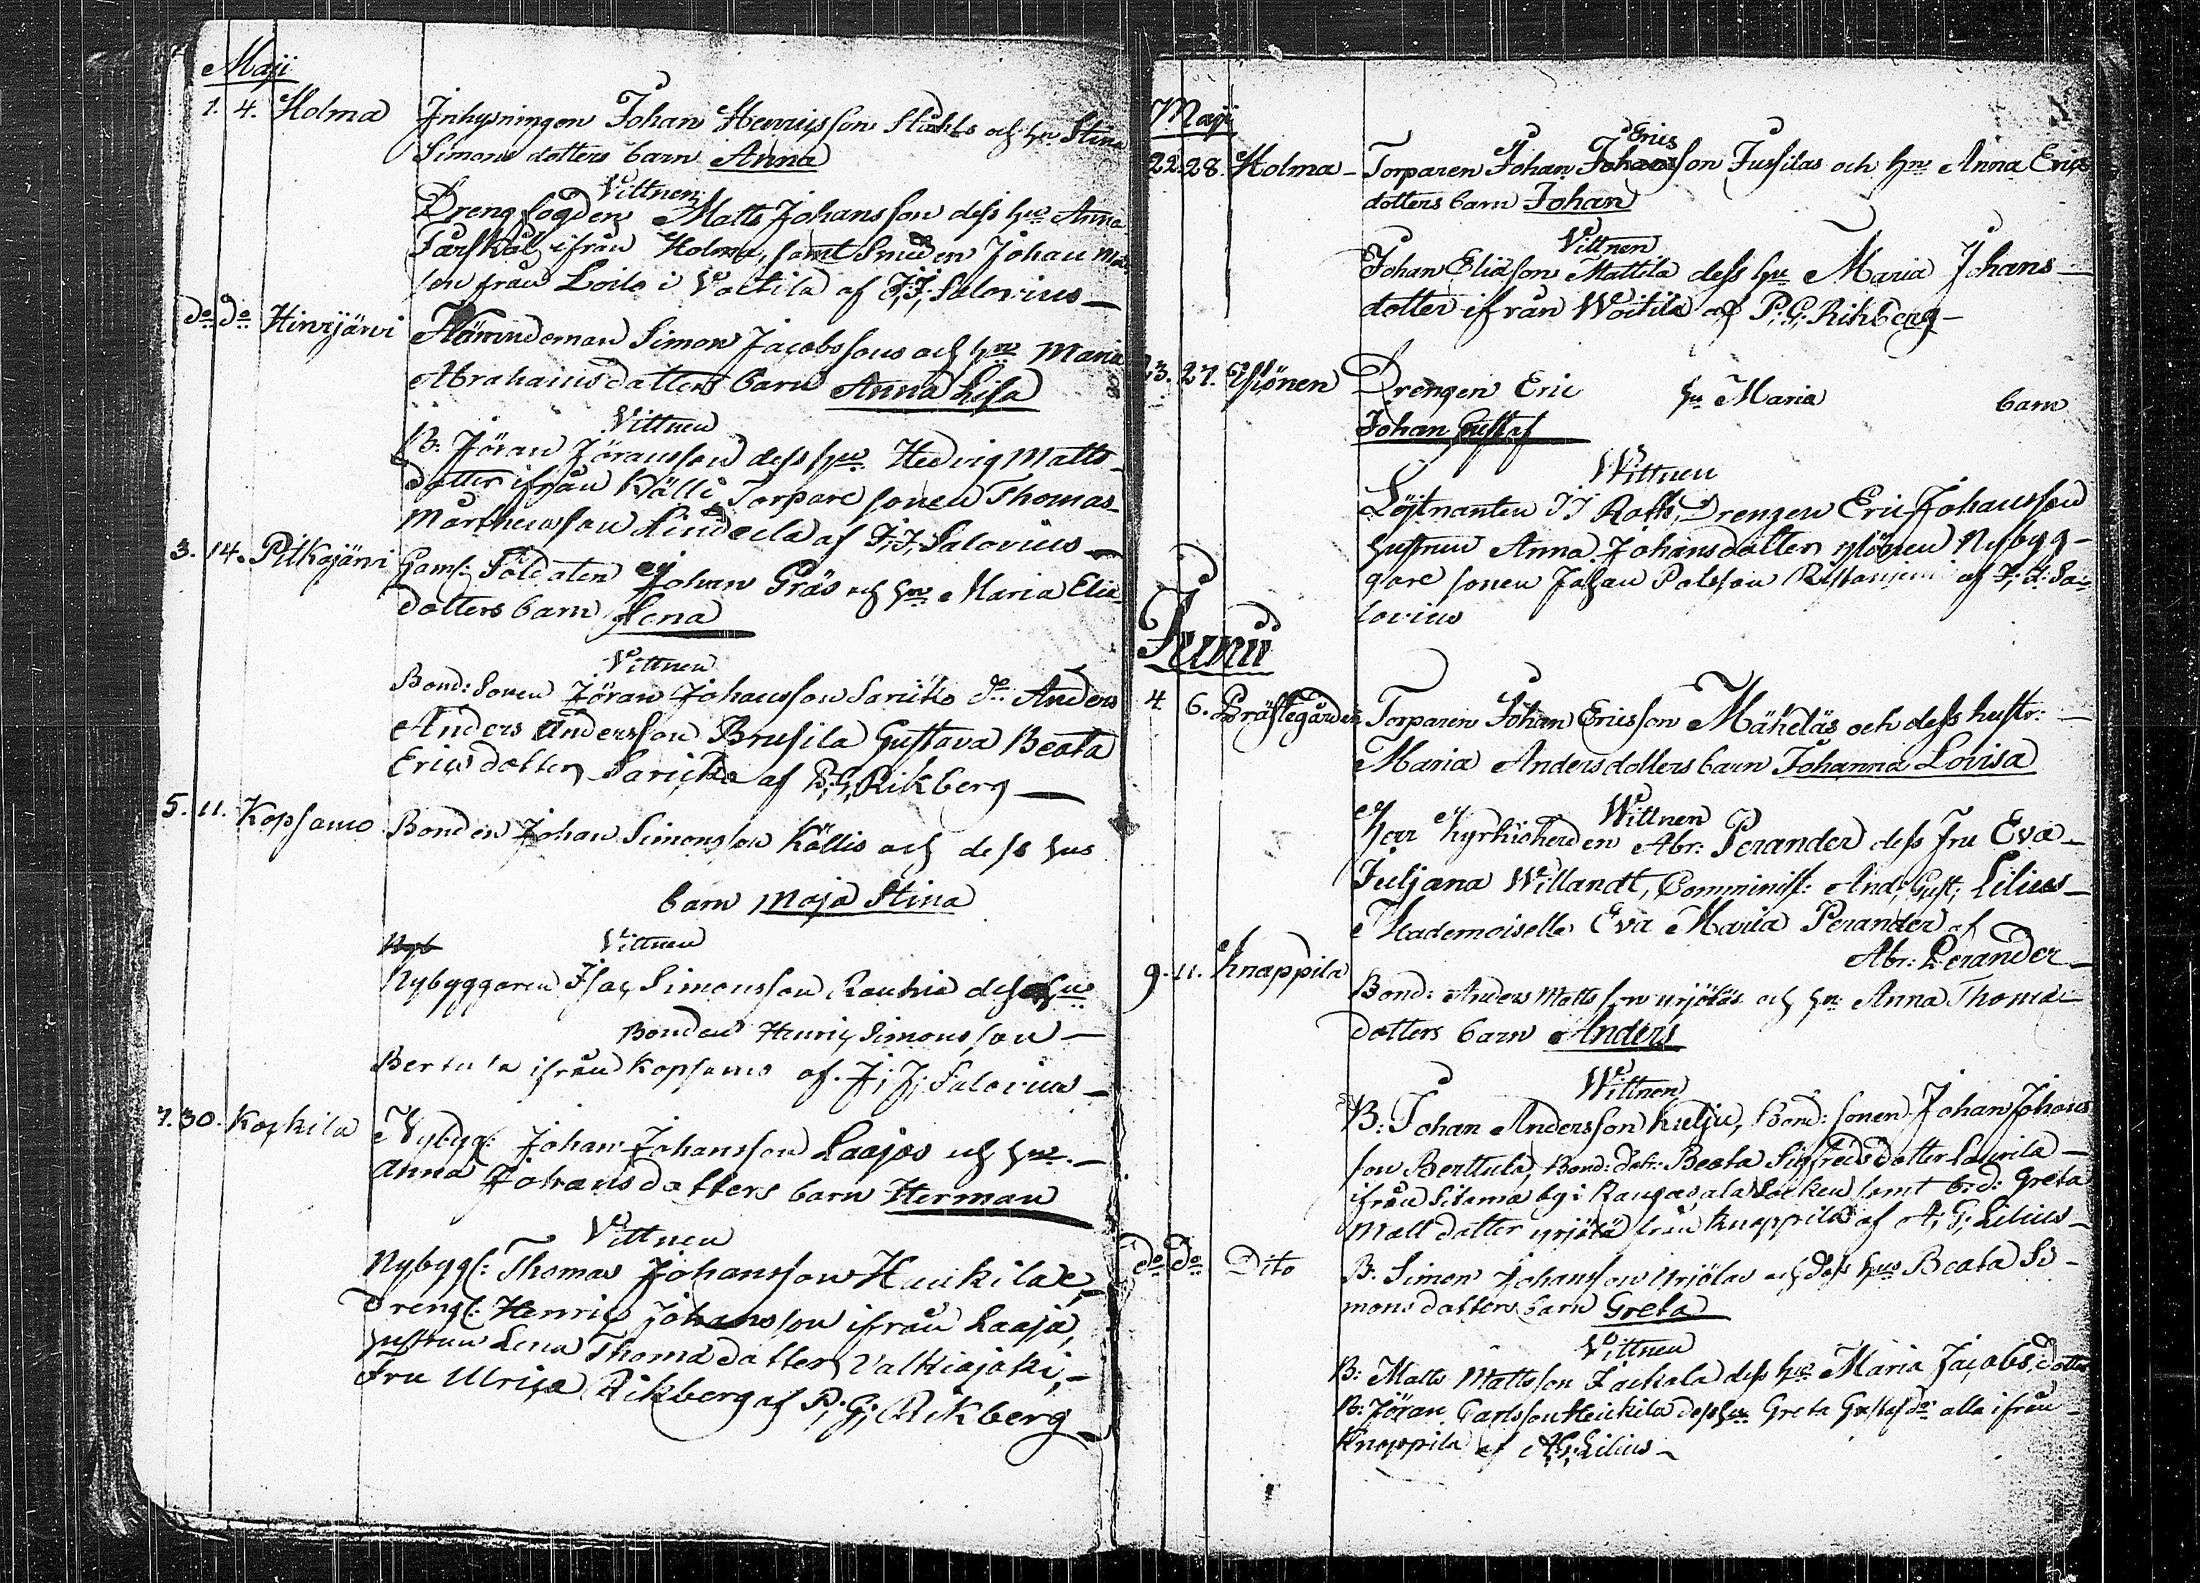 Maji
1. 4. Holma Inhysningen Johan Henricsson Ståhls och hu Stina
Simons dotters barn Anna
Vittnen
Drengfogden Matts Johansson dess hu Anna
ifrån Holma, samt Smeden Johan
son från Loilo i Voitila af J. J. Salovius
do do Hirvijärvi Nämndeman Simon Jacobssons och hu Maria
Abrahamsdotters barn Anna Lisa
Vittnen
B: Jöran Jöransson dess hu Hedvig Matts
dotter ifrån Källi, Torpare sonen Thomas
Mårthensson Lindela af J. J. Salovius
3. 14. Pitkäjärvi Gamf: Soldaten Johan Gräs och hu Maria Elia
dotters barn Lena
Vittnen
Bond: Sonen Jöran Johansson Sarciko dr Anders
Anders Andersson Brusila Gustava Beata
Erics dotter af P. G. Rikberg
5. 11. Kopsamo Bonden Johan Simonsson Källis och dess hus
barn Maja Stina
Nyb Vittnen
Nybyggaren Isac Simonsson Rauhia dess hu
Bonden Henric Simonsson
Bertula ifrån Kopsamo af J. J. Salovius
7. 30. Koskila Nybyg: Johan Johansson Laajas och hu
Anna Johansdotters barn Herman
Vittnen
Nybygg: Thomas Johansson Heikilä
Dreng: Henric Johansson ifrån Laaja,
hustrun Lena Thomædotter Valkiajoki,
Fru Ulrica Rikberg af P. G. Rikberg
Maji
22. 28. Holma Torparen Johan Erics Johansson Jussilas och hu Anna Erics
dotters barn Johan
Vittnen
Johan Eliasson Mattila dess hu Maria Johans
dotter ifrån Woitila af P. G. Rikberg
23. 27. Ylönen Drengen Eric hu Maria barn
Johan Gustaf
Wittnen
Löjtnanten J J Roth, Drengen Eric Johansson
hustrun Anna Johansdotter Ylönen Nybyg-
gare sonen Johan Polsson af J. J. Sa-
lovius
Junii
4 6. Prästegården Torparen Johan Ericsson Mäkeläs och dess hustr:
Maria Andersdotters barn Johanna Lovisa
Wittnen
Herr Kyrkioherden Abr: Perander dess Fru Eva
Juljana Willandt, Comminist: And: Gust: Lilius
Mademoiselle Eva Maria Perander af
Abr: Perander
9. 11. Knappila Bond: Anders Mattsson Yrjöläs och hu Anna Thomæ
dotters barn Anders
Wittnen
B: Johan Andersson Kulju, Bond: sonen Johan Johans
son Berttula, Bond: dotr: Beata Sigfredsdotter Laurila
ifrån by i Kangasala Socken samt bd: Greta
Matts dotter Yrjölä från Knappila af A. G. Lilius
do do Dito B. Simon Johansson Yrjölas och dess hus Beata Si-
mons dotters barn Greta
Vittnen
B: Matts Mattsson dess hu Maria Jacobs dotter
B: Jöran Carlsson Heikilä dess hu Greta Gustafdr alla ifrån
Knappila af A. G. Lilius